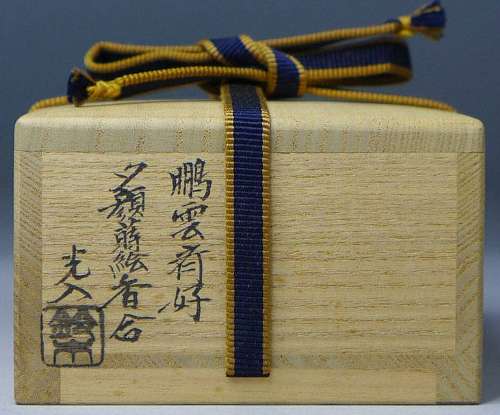 鵬雲斎好
夕顔蒔絵香合
光入